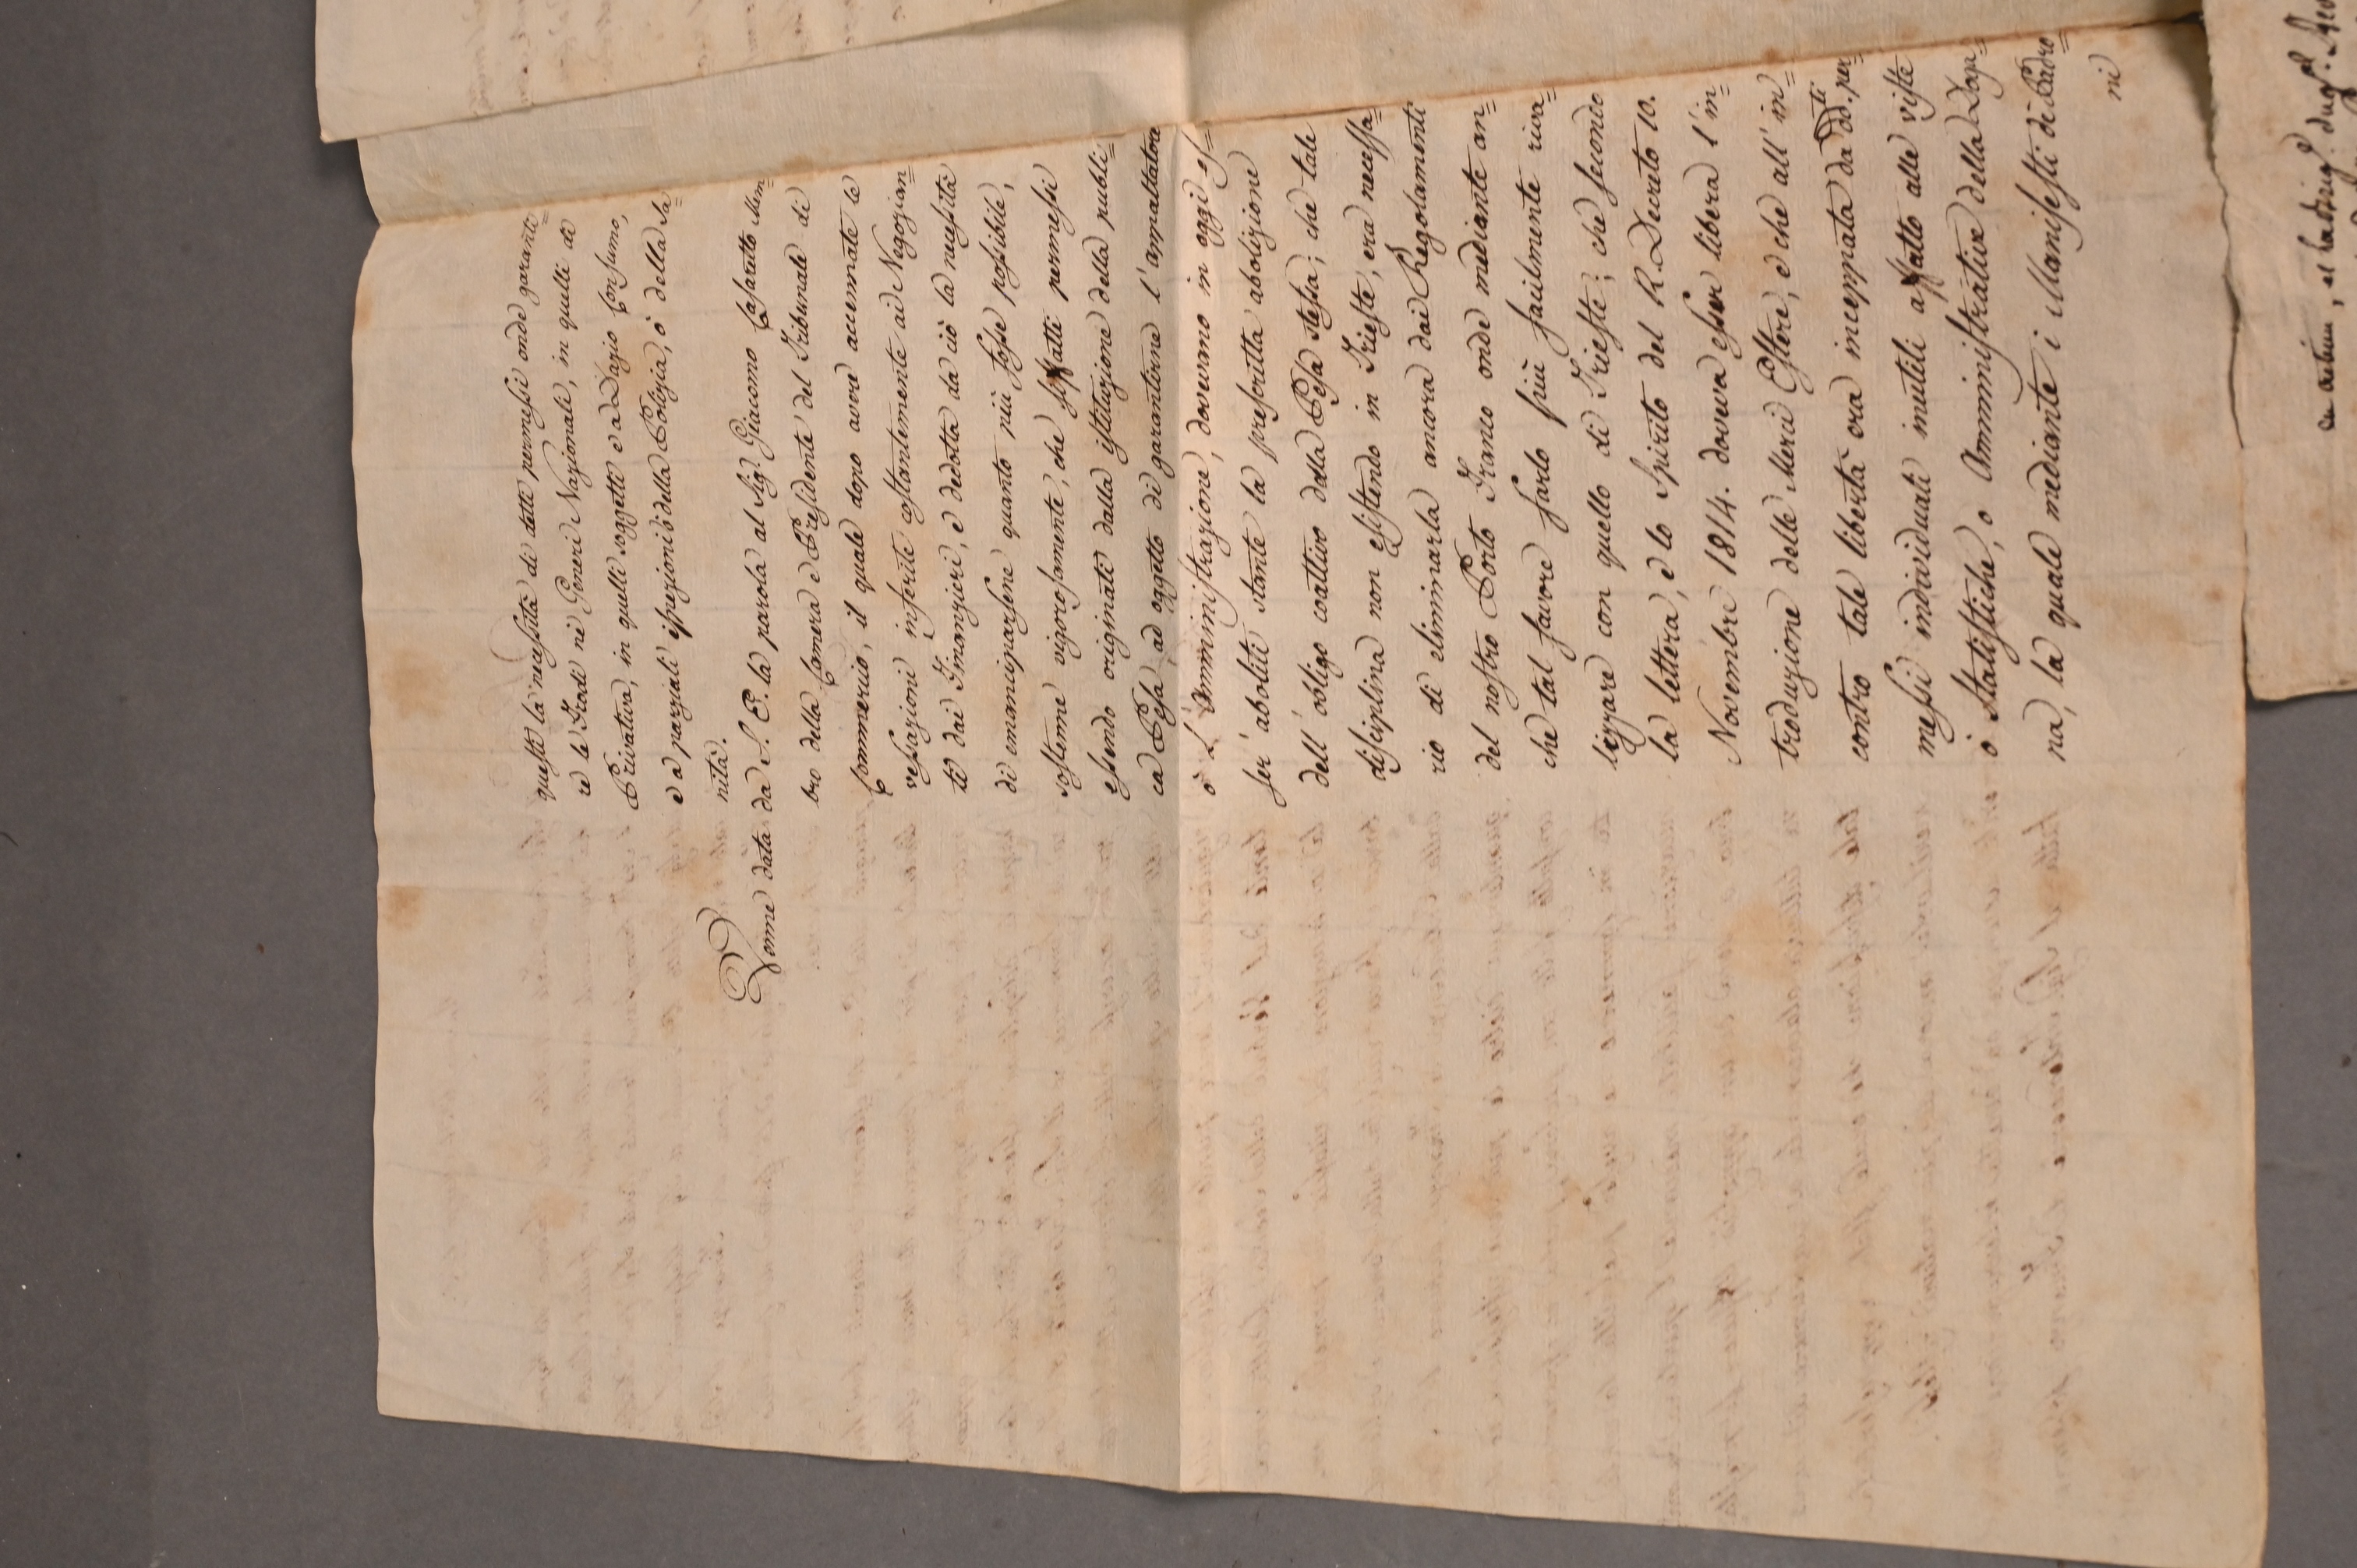 questi la necessità di detti permessi onde garanti=
re le Frodi nè Generi Nazionali, in quelli di
Privativa, in quelli soggetti e a Dazio Consumo,
e a parziali ispezioni ò della Polizia, ò della Sa=
nità.
Venne data da S. E. la parola al Sig.r Giacomo Casaretto Mem=
bro della Camera e Presidente del Tribunale di
Commercio, il quale dopo avere accennate le
vessazioni inferite costantemente ai Negozian=
ti dai Finanzieri, e dedotta da ciò la necessità
di emanciparsene quanto più fosse possibile,
sostenne vigorosamente, che siffatti permessi
essendo originati dalla istituzione della publi=
ca Pesa, ad oggetto di garantirne l'appaltatore
ò l'Amministrazione, dovevano in oggi es=
ser' aboliti stante la prescritta abolizione
dell'obligo coattivo della Pesa stessa; che tale
disciplina non esistendo in Trieste, era necessa=
rio di eliminarla ancora dai Regolamenti
del nostro Porto Franco onde mediante an=
che tal favore farlo più facilmente riva=
lizzare con quello di Trieste; che secondo
la lettera, e lo Spirito del R. Decreto 10.
Novembre 1814. doveva esser libera l'in=
troduzione delle Merci Estere, e che all'in=
contro tale libertà era inceppata da dd.ti per=
messi individuali inutili affatto alle viste
ò Statistiche, o Amministrative della Doga=
na, la quale mediante i Manifesti di Padro=
ni